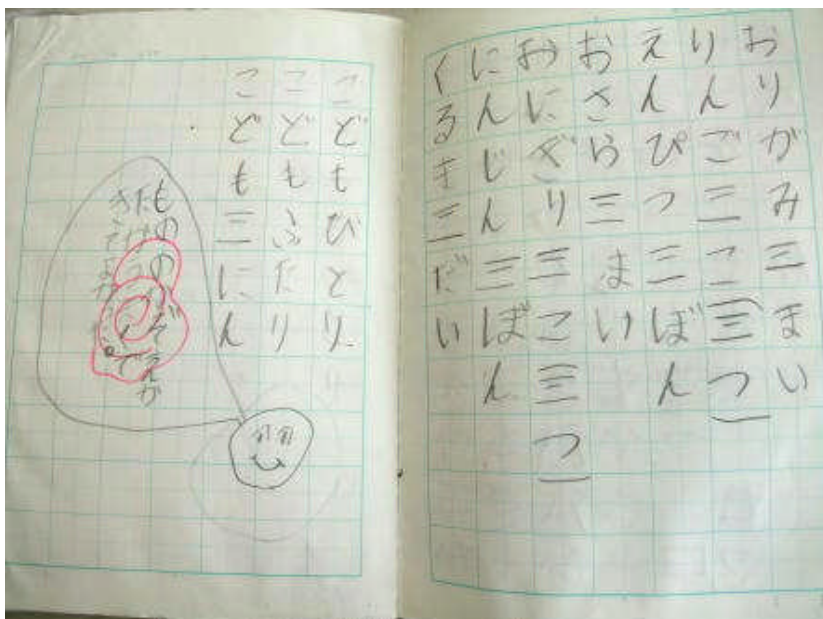 おりがみ三まい
りんご三こ三つ
えんぴつ三ぼん
おさら三まい
おにぎり三こ三つ
にんじん三ぼん
くるま三だい
こどもびとり
こどもふたり
こども三にん
もののかぞえが